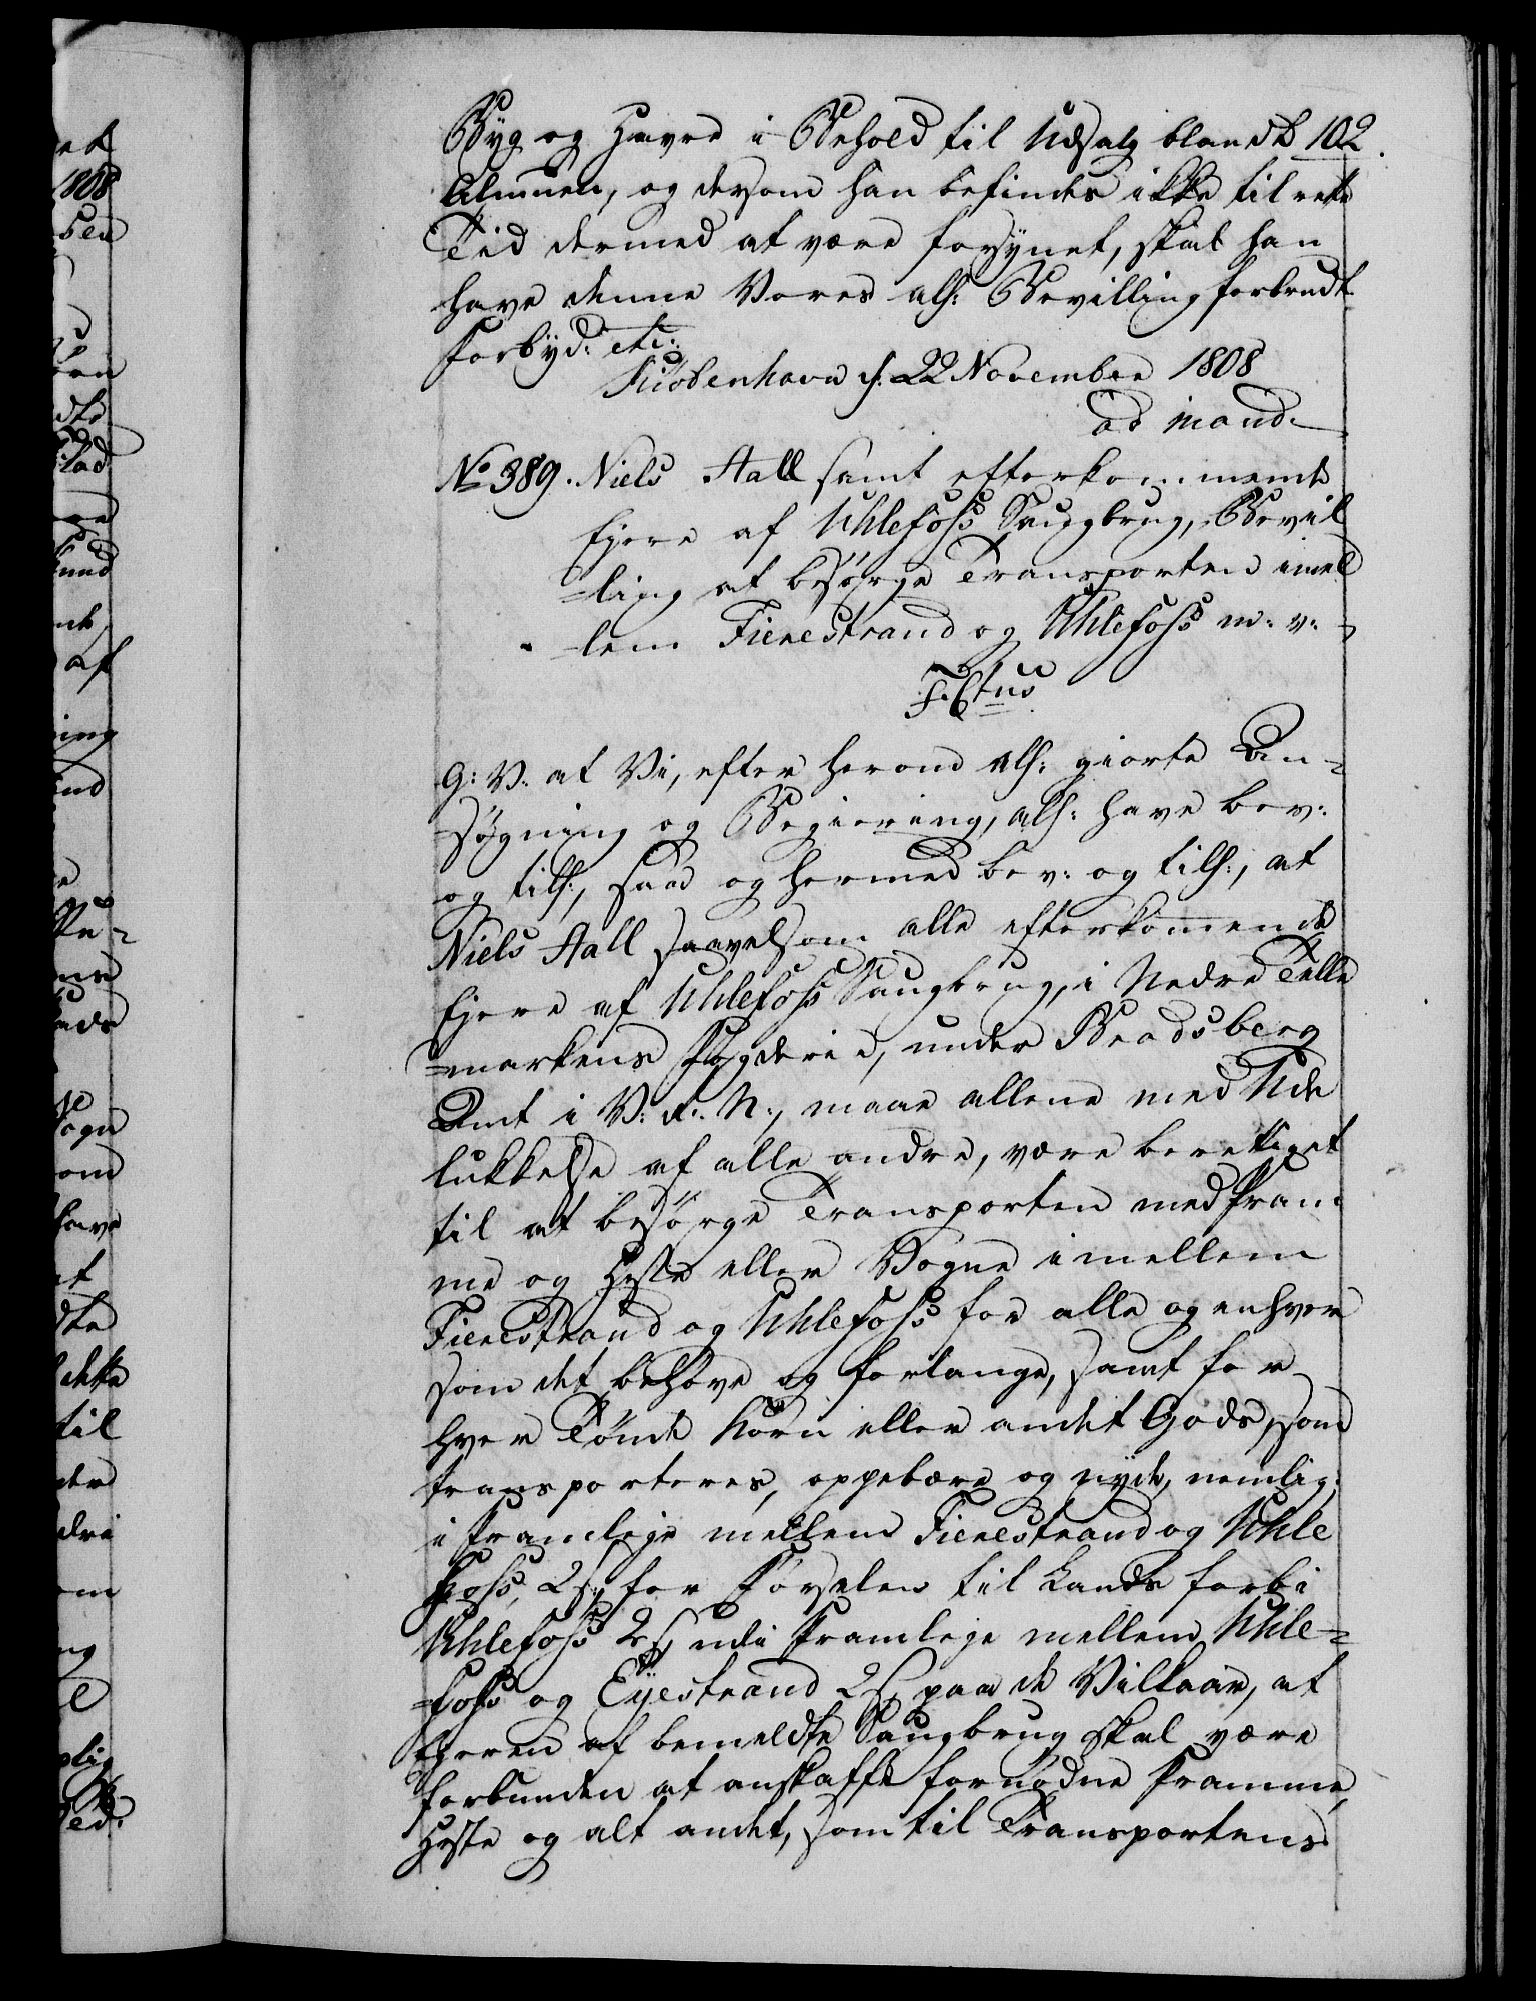 Byg og Havre i Behold til Udsalg blandt 102.
Almuen, og dersom han befindes ikke til rette
Tid dermed at være forsynet, skal han
have denne Vores alh: Bevilling forbrudt
Forbyd: etc:
Kiøbenhavn d: 22 November 1808
ad mand.
No 389. Niels Aall samt efterkommende
Ejere af Uhlefoss Saugbrug, Bevil
=ling at besørge Transporten imel
=lem Fierestrand og Uhlefoss m: v:
F. Ctus
G: V: at Vi, efter herom alh: giorte An=
søgning og Begiering, alh: have bev:
og tilh:, saa og hermed bev: og tilh:, at
Niels Aall saavelsom alle efterkommende
Ejere af Uhlefoss Saugbrug, i Nedre Telle
=markens Fogderie, under Bradsberg
Amt i V: R: N:, maae allene med Ude
lukkelse af alle andre, være berettiget
til at besørge Transporten med Pram=
me og Heste eller Vogne imellem
Fierestrand og Uhlefoss for alle og enhver
som det behøve og forlange, samt for
hver Tønde Korn eller andet Gods, som
transporteres, oppebære og nyde, nemlig:
i Framleje mellem Fierestrand og Uhle
foss, 2 s, for Førselen til Lands forbi
Uhlefoss 2 s, udi Framleje mellem Uhle=
=foss og Eyestrand 2 s, paa de Villkaar, at
Ejeren af bemeldte Saugbrug skal være
forbunden at anskaffe fornødne Pramme,
Heste og alt andet, som til Transportens